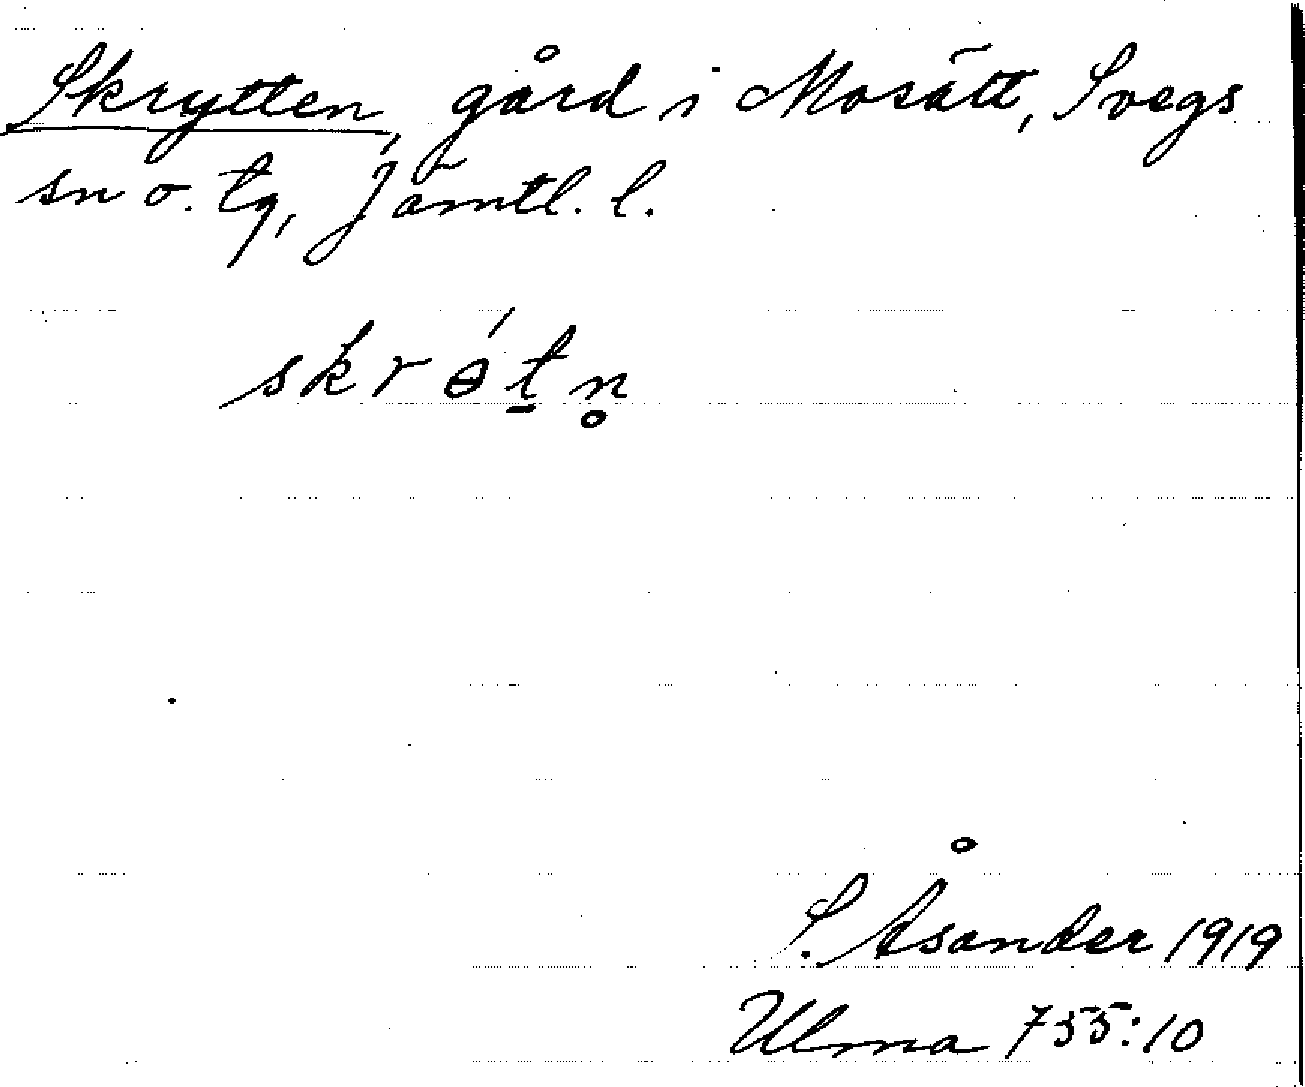 Skrytten, gård i Mosätt, Svegs
sn o. tg, Jämtl. l.
skrө́t̠n̥
S. Åsander 1919
Ulma 755:10